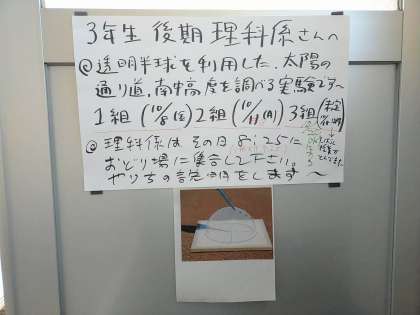 3年生 後期 理科係さんへ
@透明半球を利用した、太陽の
通り道、南中高度を調べる実験です〜
1組(10/8(金)) 2組(10/11(月)) 3組(未定
@理科係は その日 8:25に
おどり場に集合して下さい。
やりちの説明をします〜